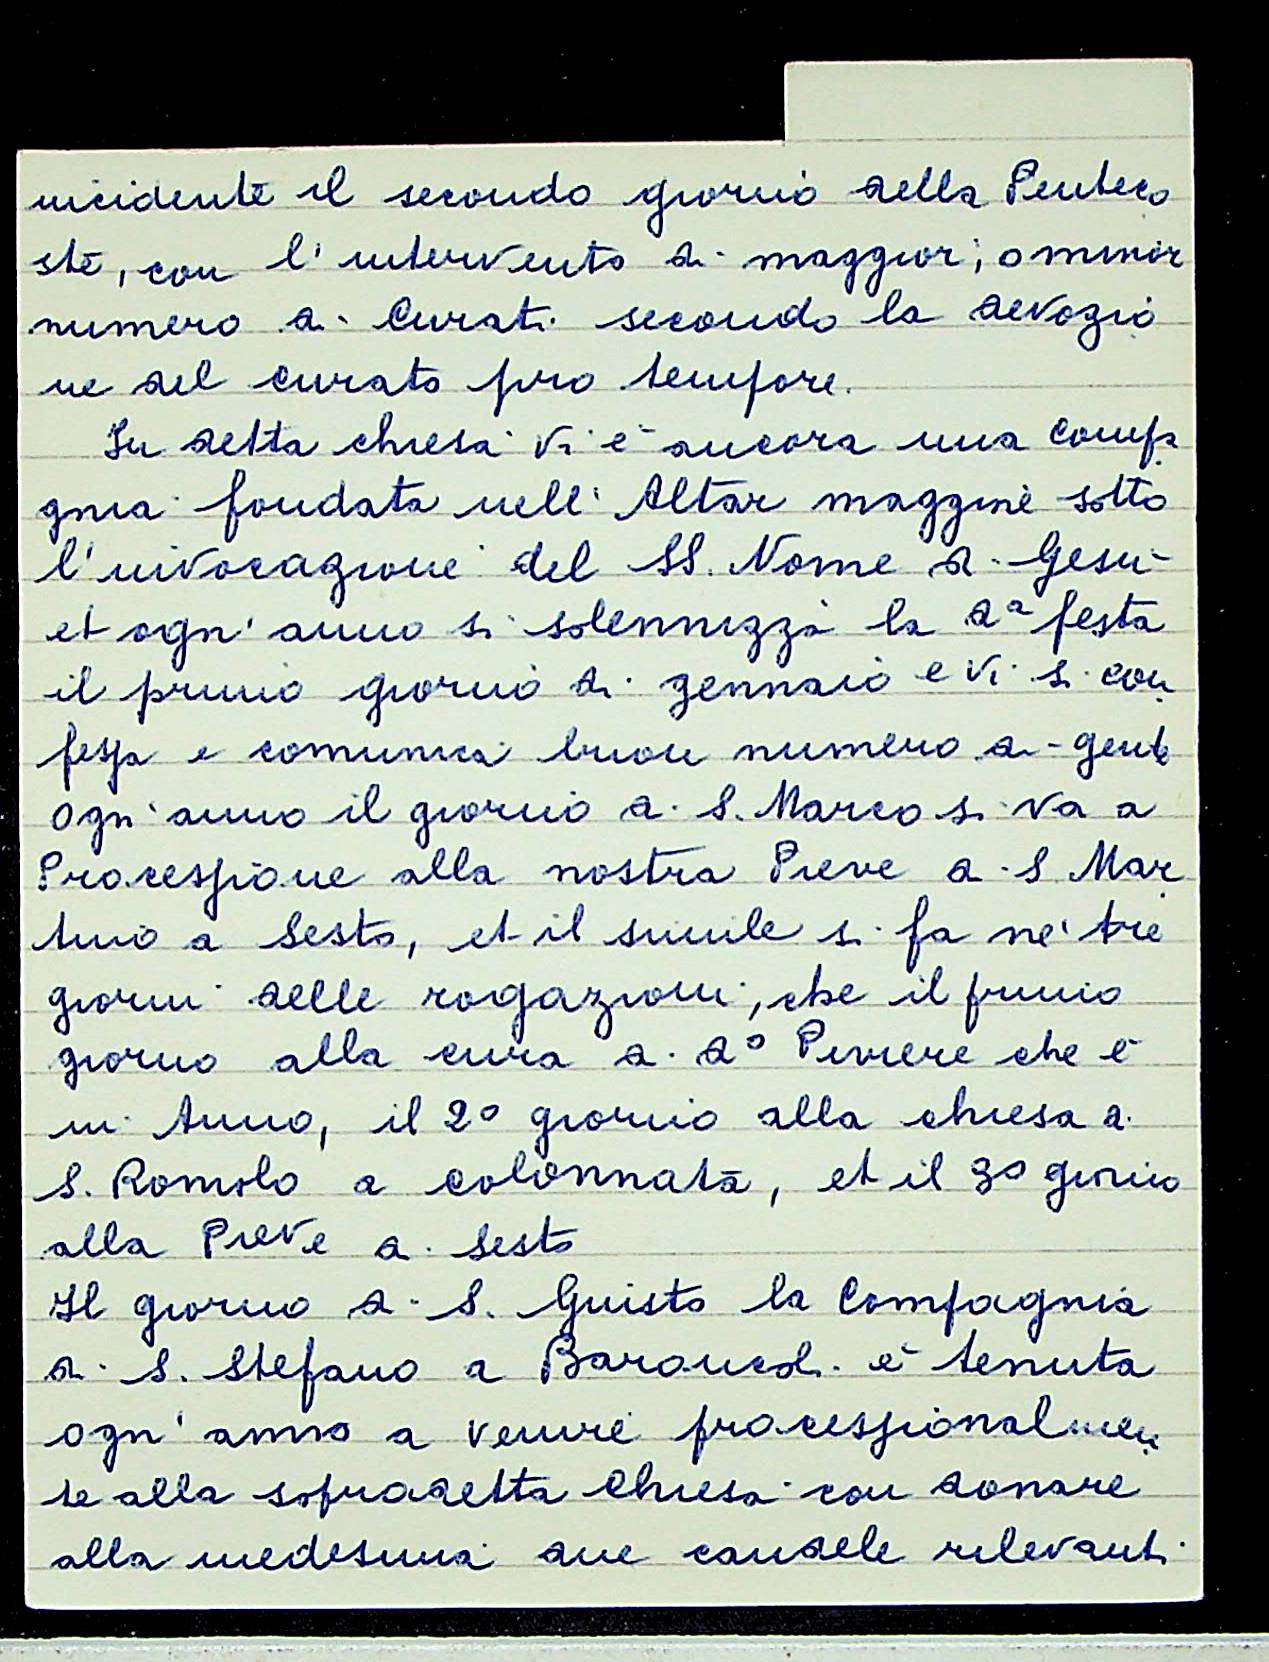 incidente il secondo giorno della Penteco
ste, con l'intervento di maggior, o minor
numero di Curati secondo la devozio
ne del curato pro tempore.
In detta chiesa vi è ancora una compa
gnia fondata nell'Altar maggiore sotto
l'invocazione del SS. Nome di Gesù
et ogn'anno si solennizza la da festa
il primo giorno di gennaio e vi si con
fessa e comunica buon numero di gente
ogn'anno il giorno di S. Marco si va a
Processione alla nostra Pieve di S Mar
tino a Sesto, et il simile si fa ne' tre
giorni delle rogazioni, che il primo
giorno alla cura di do Piviere che è
in Anno, il 2o giorno alla chiesa di
S. Romolo a colonnata, et il 3o giorno
alla Pieve di Sesto
Il giorno di S. Giusto la Compagnia
di S. Stefano a Baroncoli è tenuta
ogn'anno a venire processionalmen
te alla sopradetta Chiesa con donare
alla medesima due candele rilevanti